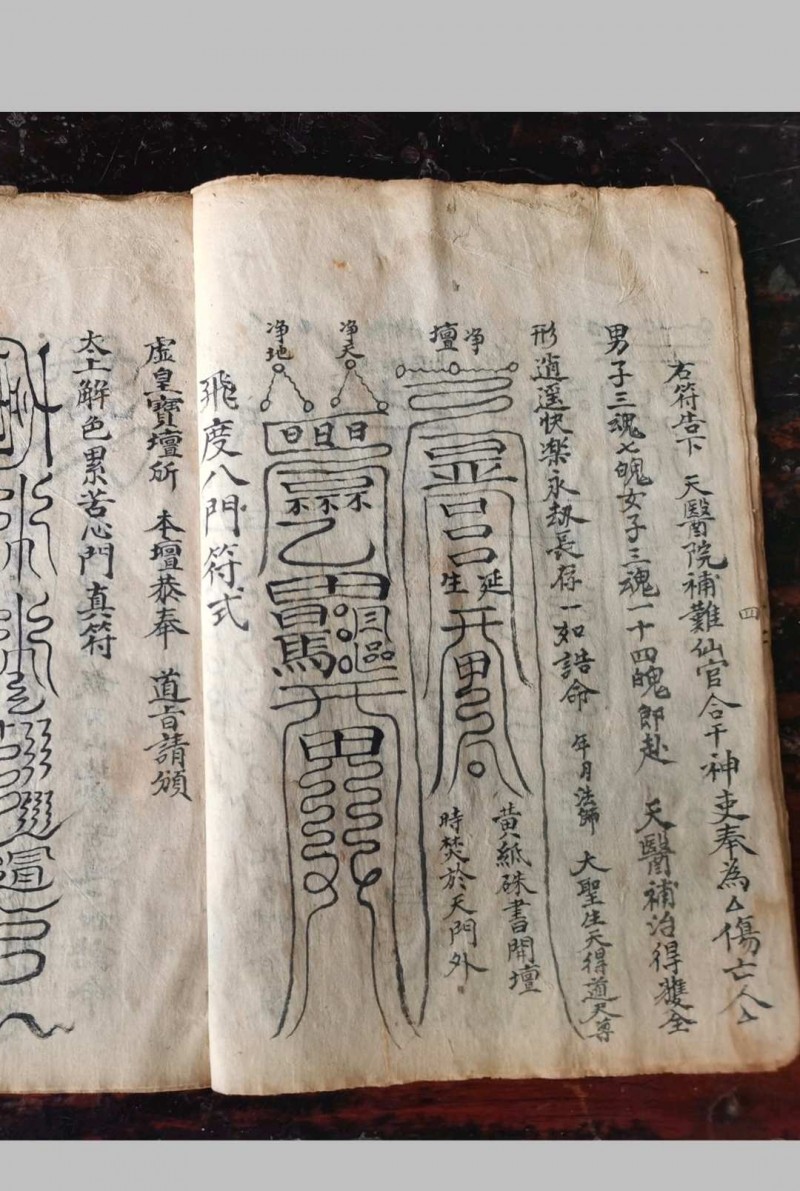 右符告下 天醫院補難仙官合干神吏奉為厶傷亡人厶
男子三魂七魄女子三魂一十四魄即赴 天醫補治得獲全
形逍遥快楽永劫長存一如誥命 年月法師 大聖生天得道天尊
净壇
延生
黄紙硃書開壇
時焚於天門外
净天
净地
日日日
不不不
飛度八門符式
虛皇寶壇所 本壇恭奉 道旨請頒
太上解色累苦心門真符